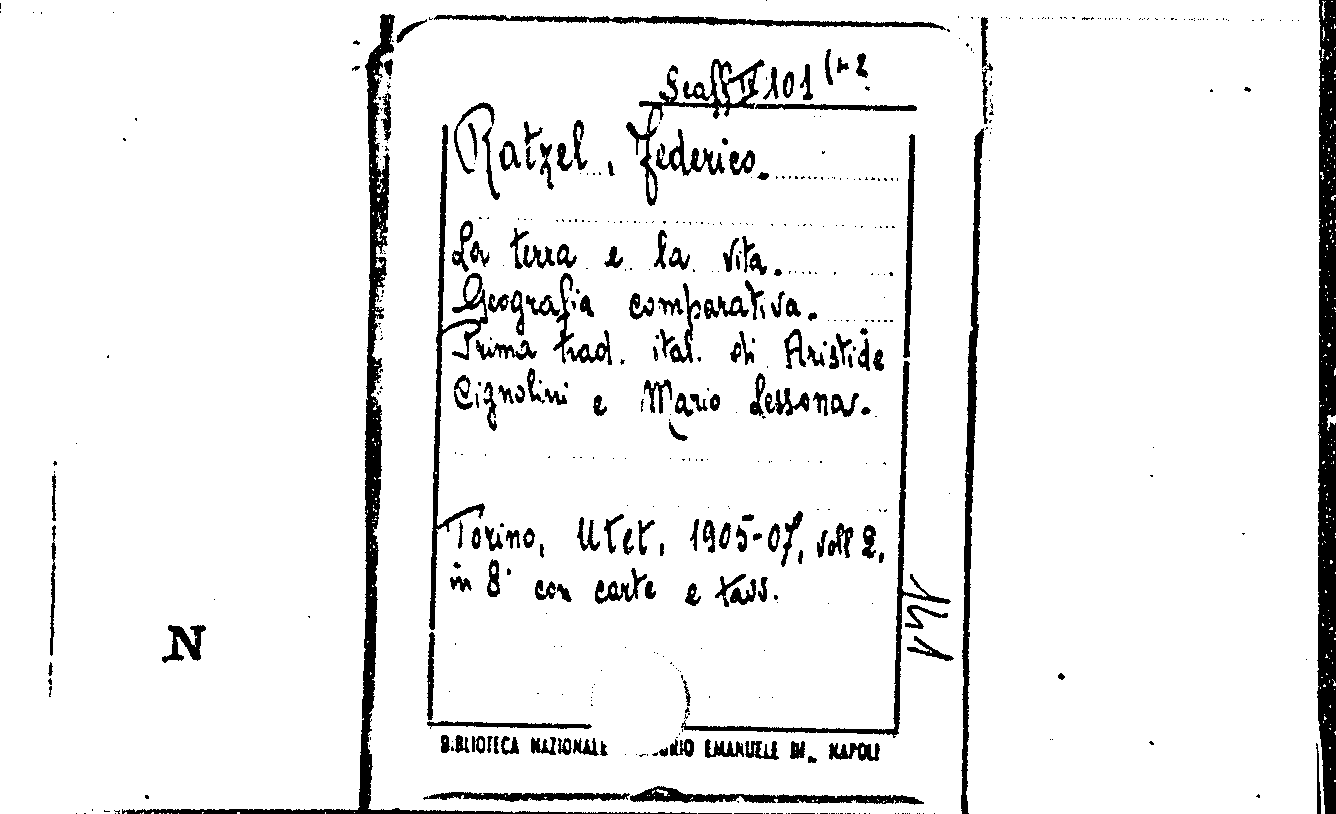 Scaff IV 101 (1-2
Ratzel, Federico.
La terra e la vita.
Geografia comparativa.
Prima trad. ital. di Aristide
Cignolini e Mario Lessona.
Torino, Utet, 1905-07, voll 2,
in 8° con carte e tavv.
141
N
BIBLIOTECA NAZIONALE EMANUELE III NAPOLI